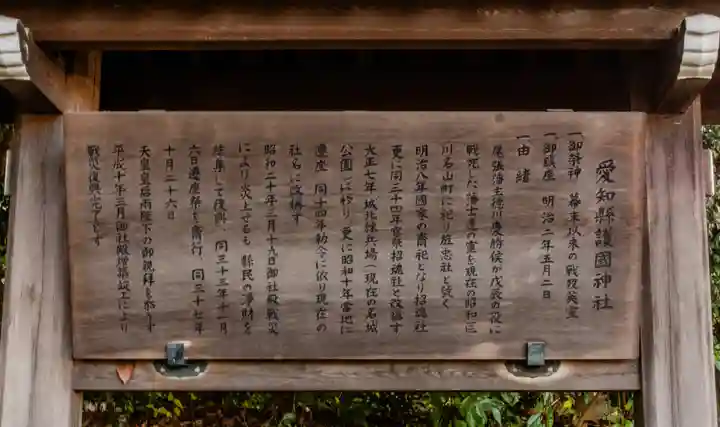 愛知縣護國神社
一、御祭神　幕末以来の戦歿英霊
一、御鎮座　明治二年五月二日
一、由緒
尾張藩主徳川慶勝侯が戊辰の役に
戦死した藩士達の霊を現在の昭和区
川名山町に祀り旌忠社と号く
明治八年國家の齋祀となり招魂社
更に同三十四年官祭招魂社と改称す
大正七年城北練兵場(現在の名城
公園)に移り更に昭和十年當地に
遷座　同十四年勅令に依り現在の
社名に改称す
昭和二十年三月十九日御社殿戦災
により炎上するも縣民の浄財を
結集して復興、同三十三年十一月
六日遷座祭を齋行、同三十七年
十月二十六日
天皇皇后両陛下の御親拝を忝うす
平成十年三月御社殿増築竣工により
戦災復興完了す